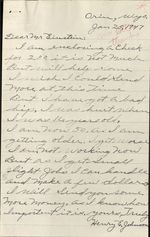 Orin, Wyo,
Jan 28, 1947
Dear Mr Einstein:
I am enclosing a Check
for 2.00 it is Not Much
but will help some
I wish I could send
More at this time
But I have not a bad
ship. I was hurt when
I was 16 years old.
I am now 50 or I am
getting older. I get worse
I am not working now
But as I get small
light Jobs I can handle
and make a few dollars
I will send you some
More Money, as I know how
Important it is, yours, Truly
Henry E Johnson